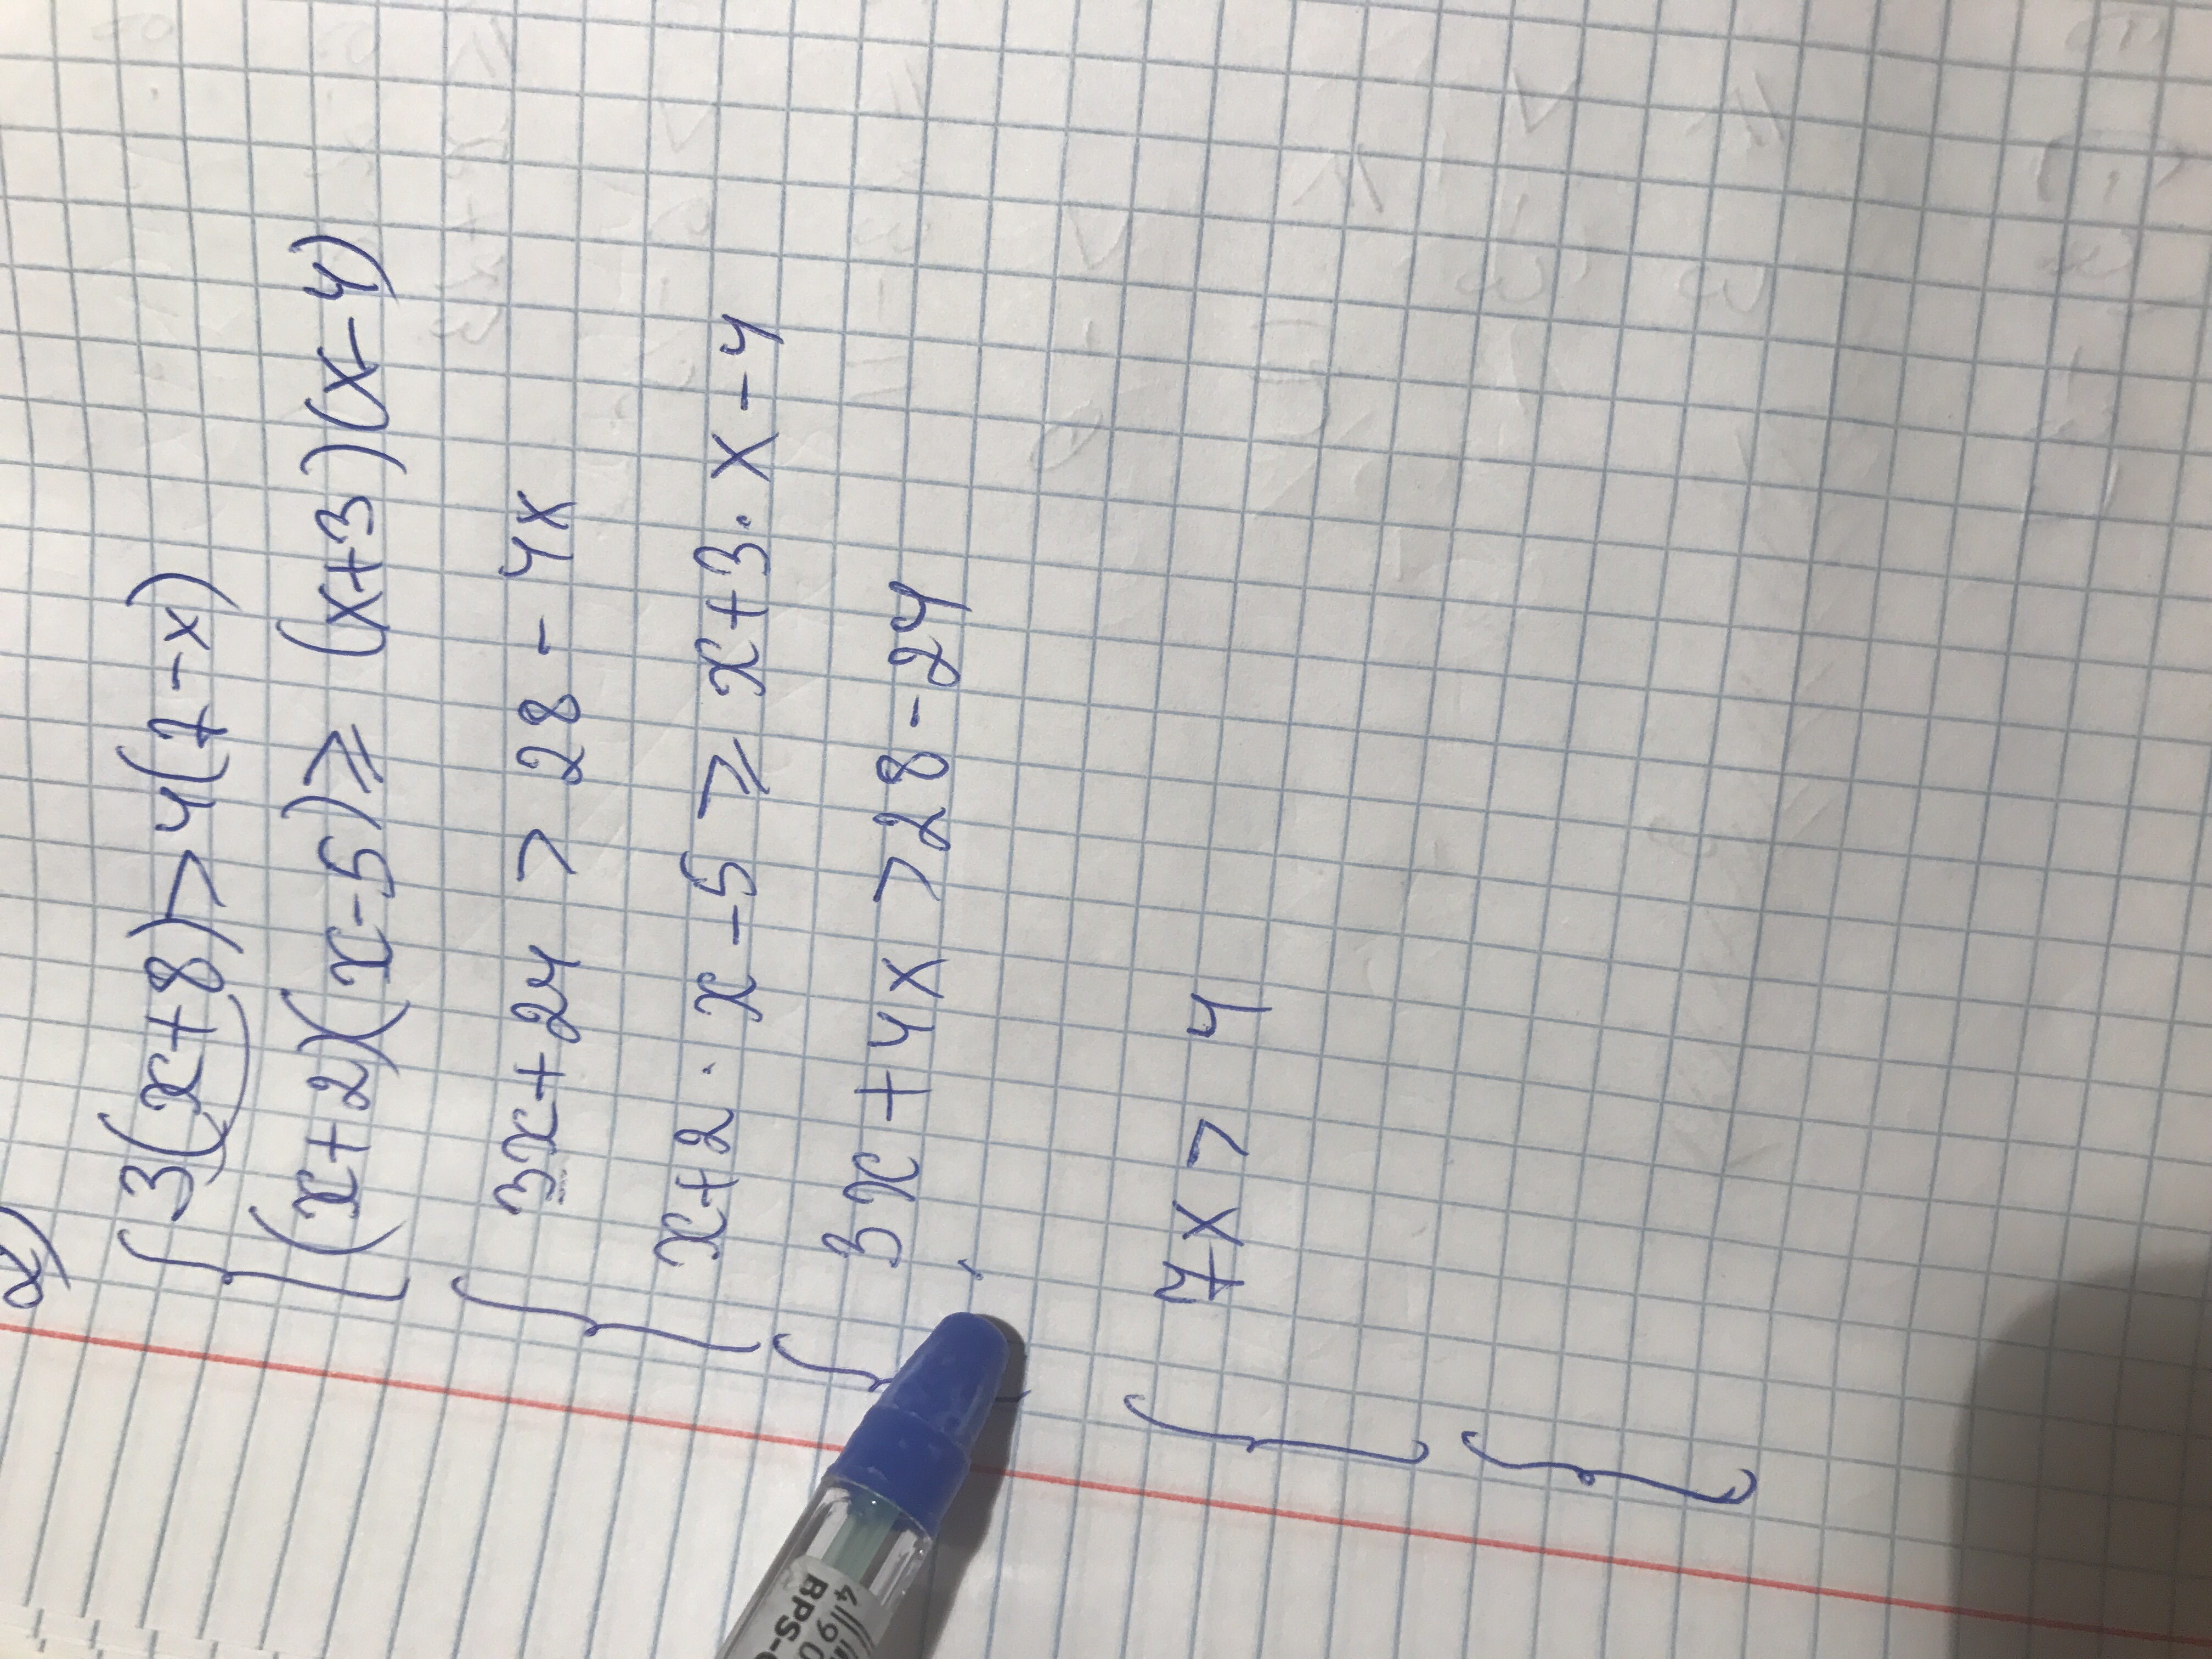 2)
3(x+8)>4(7-x)
(x+2)(x-5)⩾ (x+3)(x-4)
3x+24 > 28 - 4x
x+2 · x-5 ⩾ x+3 · x-4
3x+4x >28-24
7x> 4